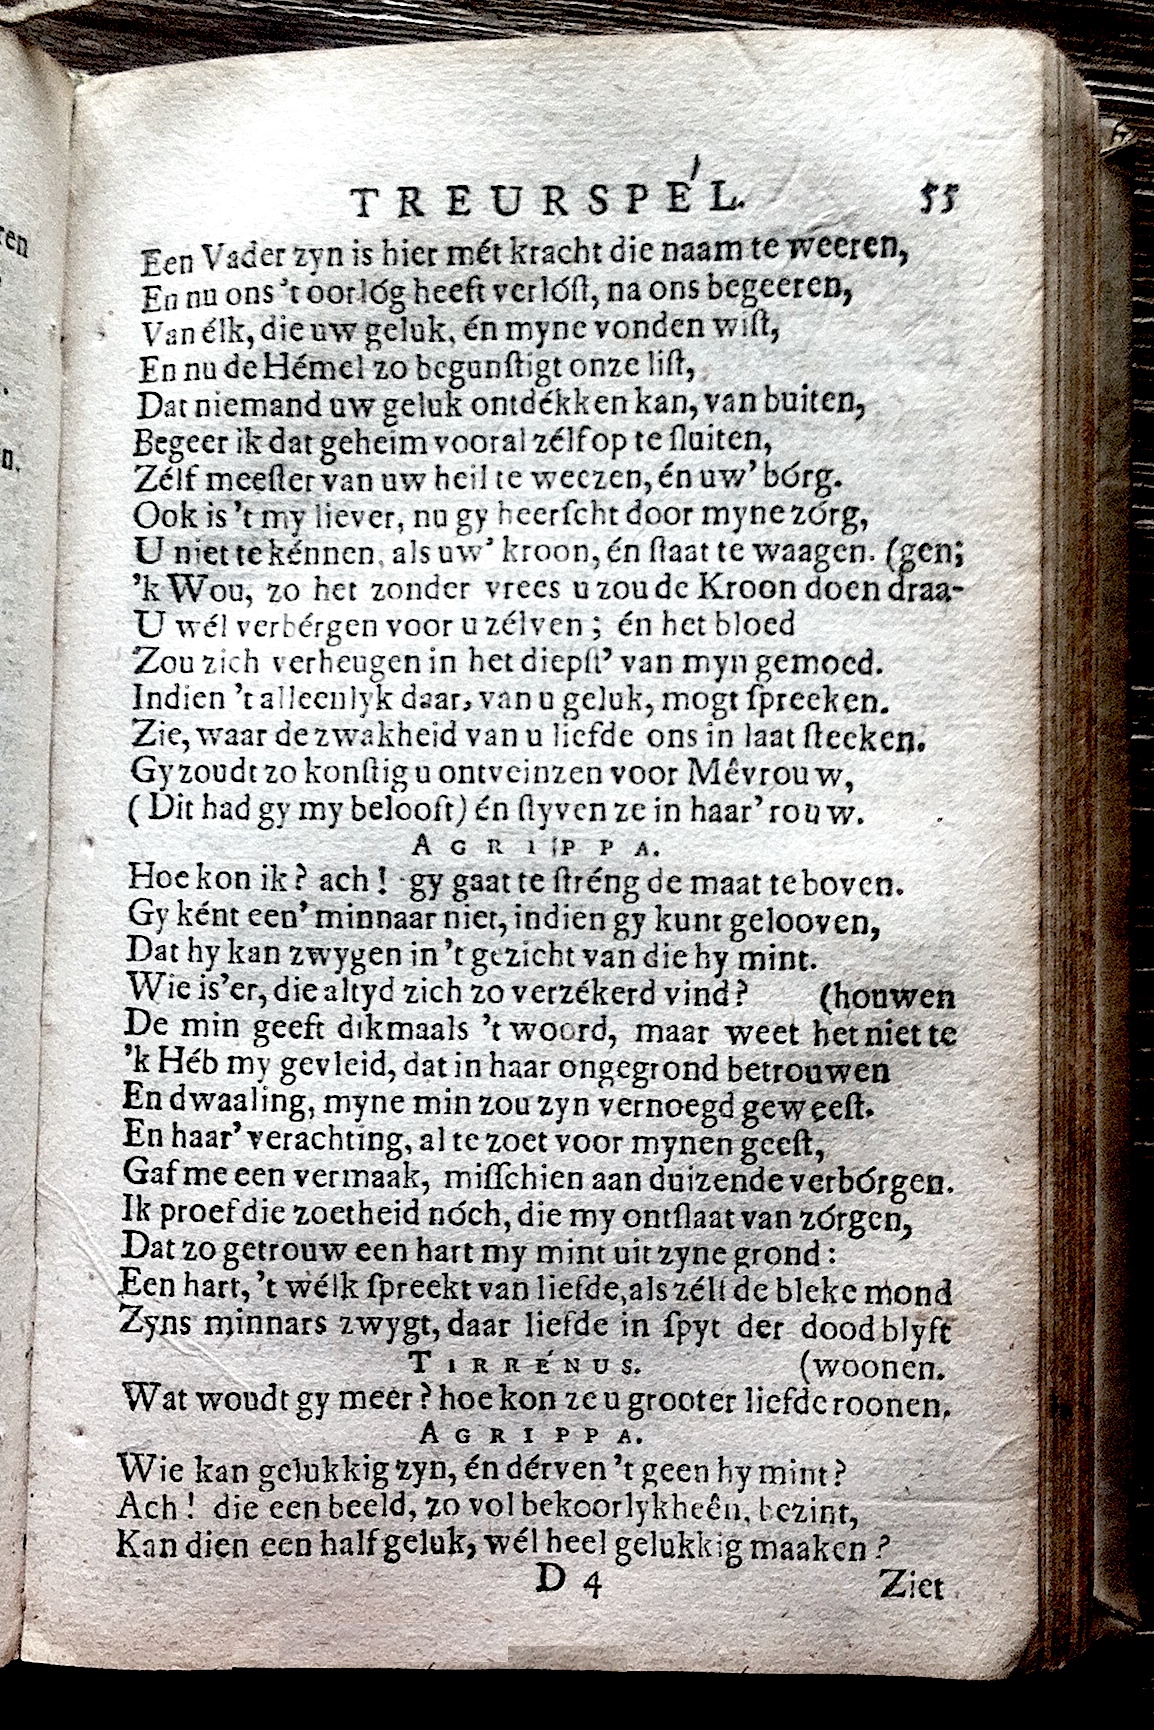 TREURSPÉL. 55
Een Vader zyn is hier mét kracht die naam te weeren,
En nu ons 't oorlóg heeft verlóſt, na ons begeeren,
Van élk, die uw geluk, én myne vonden wiſt,
En nu de Hémel zo begunſtigt onze liſt,
Dat niemand uw geluk ontdékken kan, van buiten,
Begeer ik dat geheim vooral zélf op te ſluiten,
Zélf meeſter van uw heil te weezen, én uw' bórg.
Ook is 't my liever, nu gy heerſcht door myne zórg,
U niet te kénnen, als uw' kroon, én ſtaat te waagen. (gen;
'k Wou, zo het zonder vrees u zou de Kroon doen draa-
U wél verbérgen voor u zélven; én het bloed
Zou zich verheugen in het diepſt' van myn gemoed.
Indien 't alleenlyk daar, van u geluk, mogt ſpreeken.
Zie, waar de zwakheid van u liefde ons in laat ſteeken.
Gy zoudt zo konſtig u ontveinzen voor Mêvrouw,
(Dit had gy my belooft) én ſtyven ze in haar' rouw.
AGRIPPA.
Hoe kon ik? ach! gy gaat te ſtréng de maat te boven.
Gyként een' minnaar niet, indien gy kunt gelooven,
Dat hy kan zwygen in 't gezicht van die hy mint.
Wie is'er, die altyd zich zo verzékerd vind? (houwen
De min geeft dikmaals 't woord, maar weet het niet te
'k Héb my gevleid, dat in haar ongegrond betrouwen
En dwaaling, myne min zou zyn vernoegd geweeſt.
En haar' verachting, al te zoet voor mynen geeſt,
Gaf me een vermaak, miſſchien aan duizende verbórgen.
Ik proef die zoetheid nóch, die my ontſlaat van zórgen,
Dat zo getrouw een hart my mint uit zyne grond:
Een hart, 't wélk ſpreekt van liefde, als zélf de bleke mond
Zyns minnars zwygt, daar liefde in ſpyt der dood blyft
TIRRÉNUS. (woonen.
Wat woudt gy meer? hoe kon ze u grooter liefde toonen.
AGRIPPA.
Wie kan gelukkig zyn, én dérven 't geen hy mint?
Ach! die een beeld, zo vol bekoorlykheên, bezint,
Kan dien een half geluk, wél heel gelukkig maaken?
D 4 Ziet